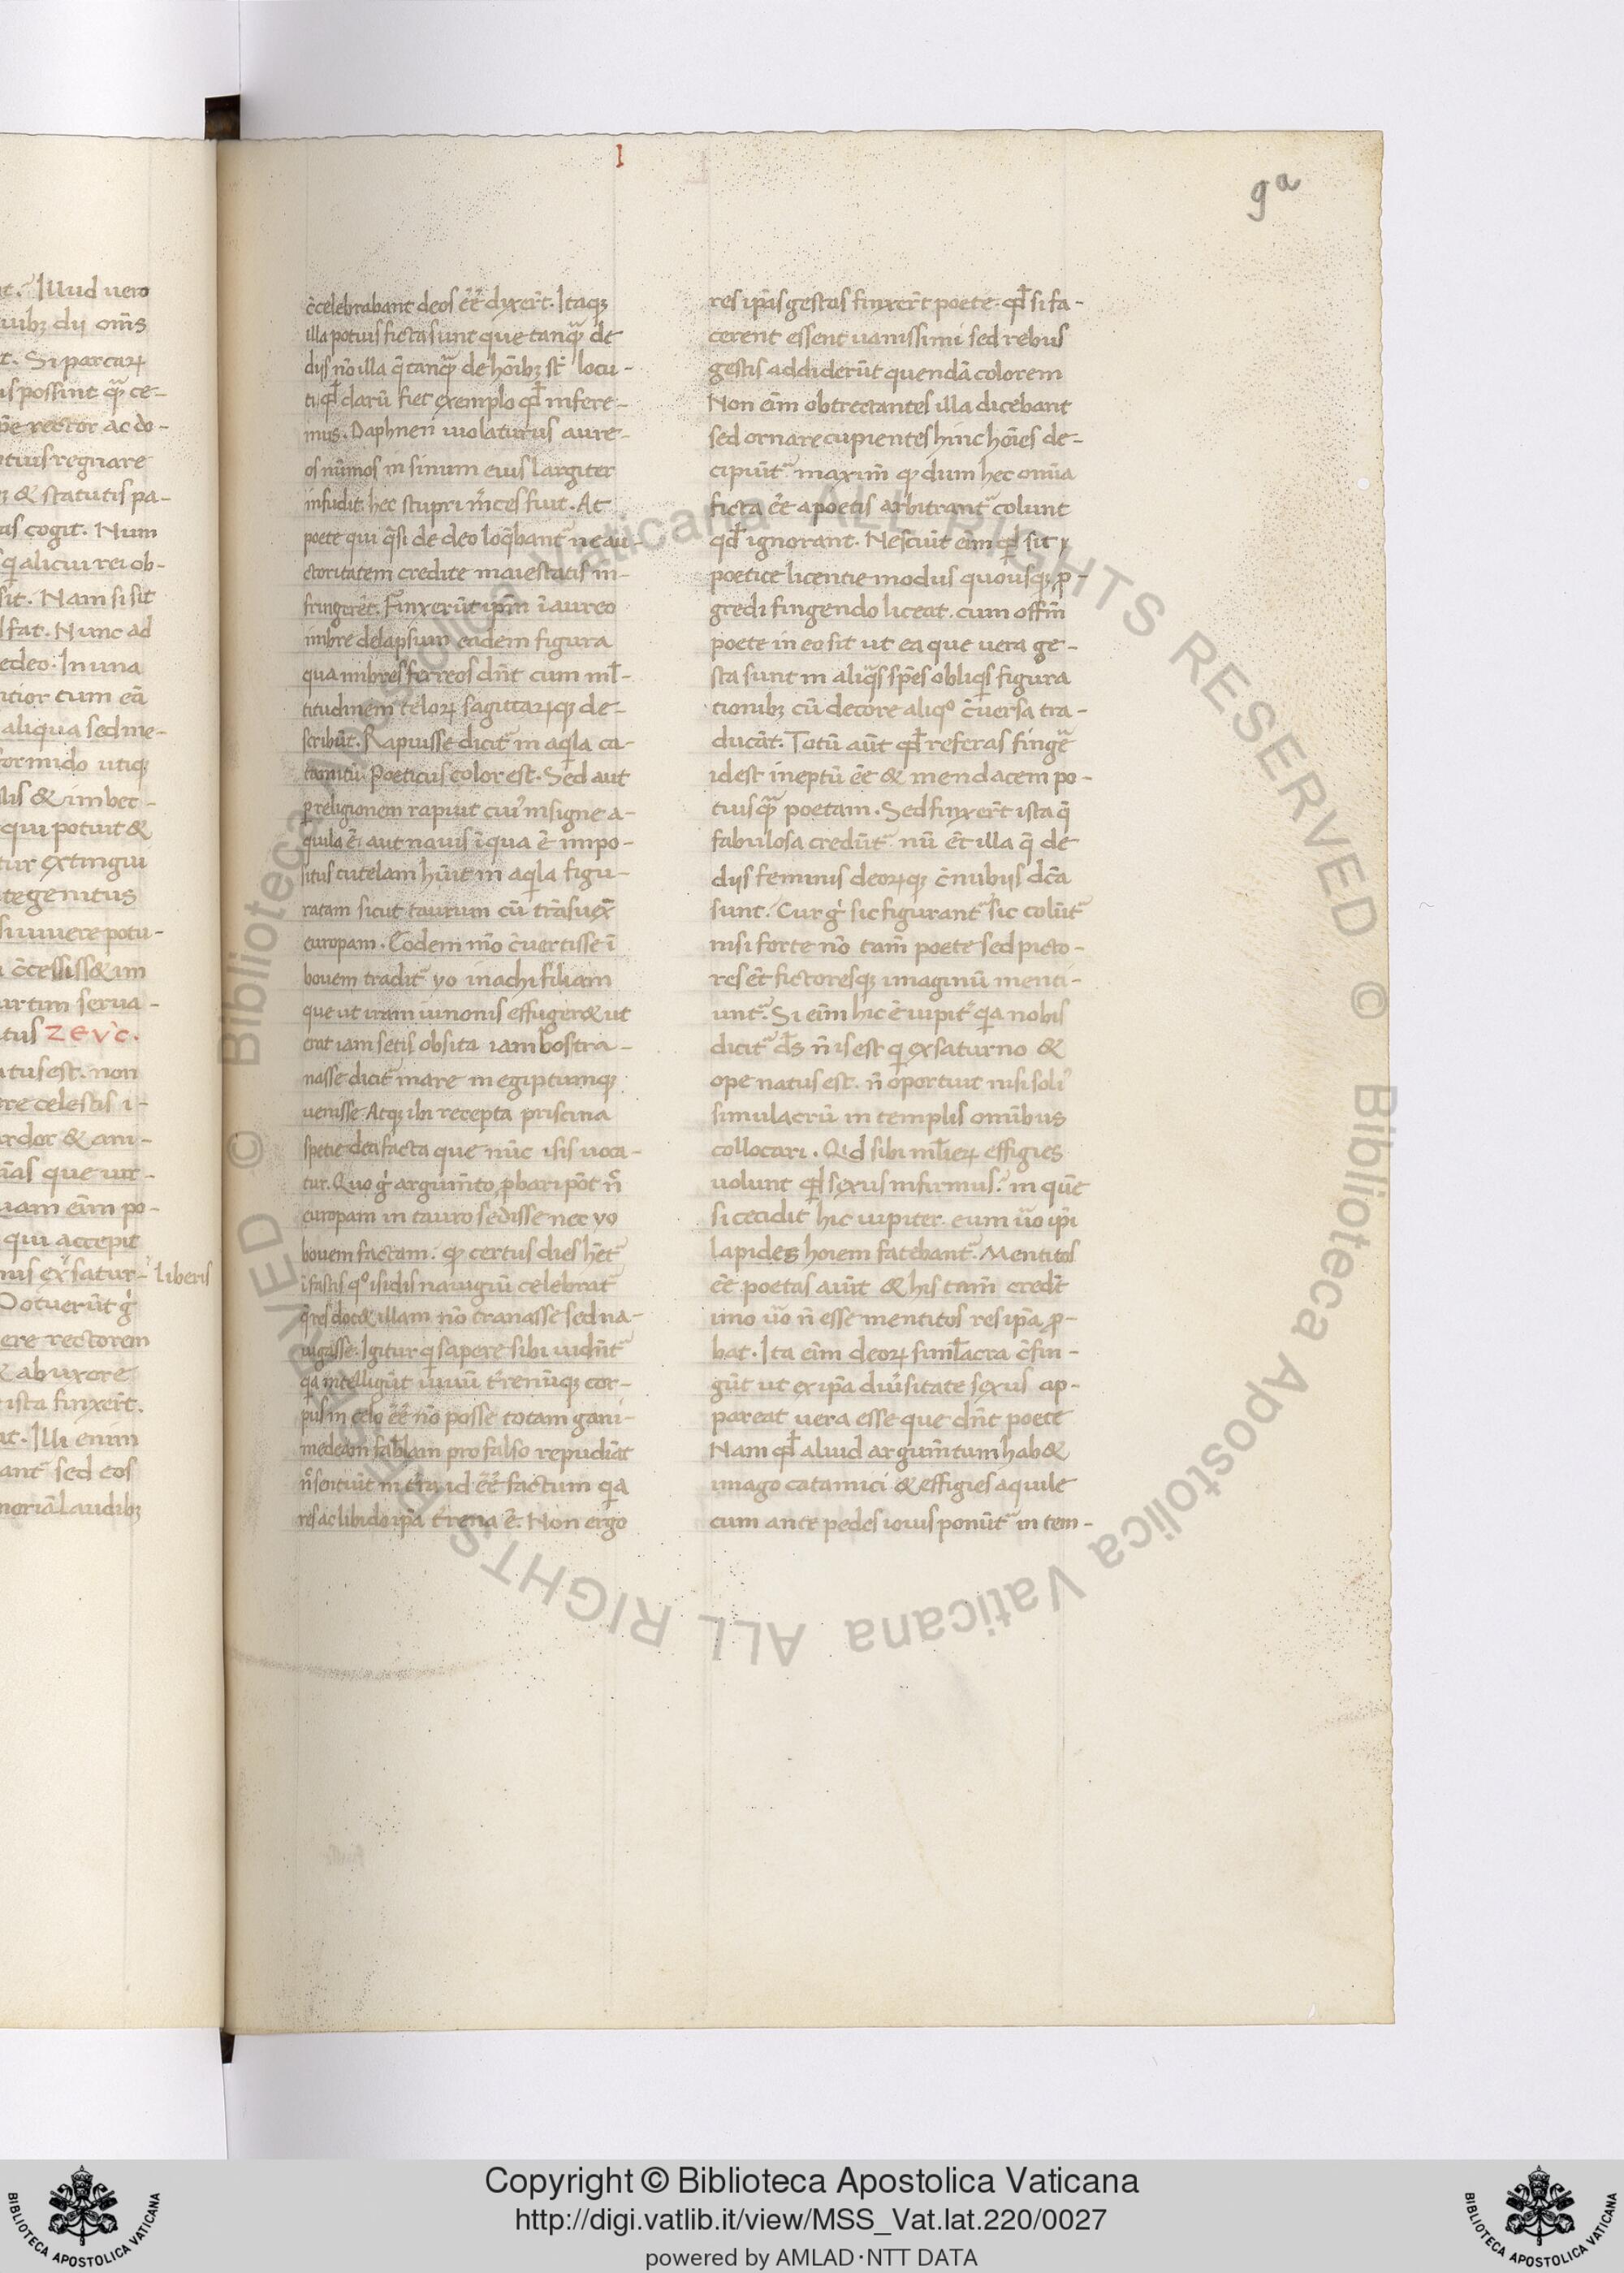 I
9a
t. Illud uero
uibꝫ dij om̄s
t. Si parcaꝝ
is possint qᷓꝫ ce-
pe rector ac do-
tius regnare
ꝫ & statutis pa-
as cogit. Num
qͥ alicui rei ob-
sit. Nam si sit
l fat. Nunc ad
edeo. In una
ntior cum eā
aliqua sed me-
formido utiqꝫ
lis & imbec-
qui potuit &
tur extingui
te genitus
uiuere potu-
i c̄cessiss& im
urtim serua-
tus ZEVC.
atus est. non
re celestis i-
rdor & ani-
ias que uit-
uam eīm po-
qui accepit
nis ex satur- liberis
Potuerūt gͦ
ere rectorem
& ab uxore
ista finxerͭ.
t. Illi enim
ant sed eos
moriā laudibꝫ
c̄celebrabant deos ēē dixerͭ. Itaqꝫ
illa potius ficta sunt que tanqᷓꝫ de
diis nō illa q̄ tanqᷓꝫ de hōibꝫ st̄ locu-
ti qđ clarū fiet exemplo qđ infere-
mus. Daphnen uiolaturus aure-
os nūmos in sinum eius largiter
infudit. hec stupri m̄ces fuit. At
poete qui q̄si de deo loq̄bant᷑ ne au-
ctoritatem credite maiestatis in-
fringerēt. Finxerūt ip̄m ī aureo
imbre delapsum eadem figura
qua imbres ferreos dn̄t cum ml̄-
titudinem teloꝝ sagittaꝝqꝫ de-
scribūt. Rapuisse dicit᷑ in aqͥla ca-
tamitū. Poeticus color est. Sed aut
ꝑ religionem rapuit cuiꝰ insigne a-
quila ē: aut nauis ī qua ē impo-
situs tutelam hūit in aqͥla figu-
ratam sicut taurum cū trāsuex̄
europam. Eodem mō c̄uertisse ī
bouem tradit᷑ yo inachi filiam
que ut iram iunonis effuger& ut
erat iam setis obsita iam bos tra-
nasse dicit᷑ mare in egiptumqꝫ
uenisse Atqꝫ ibi recepta pristina
spetie dea facta que nūc isis uoca-
tur. Quo gͦ argum̄to ꝓbari pōt n̄
europam in tauro sedisse nec yo
bouem factam. qꝫ certus dies hēt᷑
ī fastis qͦ isidis nauigiū celebrat᷑
q̄ res doc& illam nō tranasse sed na-
uigasse. Igitur qͥ sapere sibi uidn̄t᷑
qͥa intelligūt uiuū t̄renūqꝫ cor-
pus in celo ēē nō posse totam gani-
medeam fabl̄am pro falso repudiāt
n̄ sentiūt in t̄ra id ēē factum qͥa
res ac libido ip̄a t̄rena ē. Non ergo
res ip̄as gestas finxerͭ poete. qđ si fa-
cerent essent uanissimi sed rebus
gestis addiderūt quendā colorem
Non eīm obtrectantes illa dicebant
sed ornare cupientes hinc hōies de-
cipiūt᷑ maxim̄ qꝫ dum hec omīa
ficta ēē a poetis arbitrant᷑ colunt
qđ ignorant. Nesciūt eīm qđ sit
poetice licentie modus quousqꝫ ꝓ-
gredi fingendo liceat. cum offm̄
poete in eo sit ut ea que uera ge-
sta sunt in aliqͣs sp̄es obliqͥs figura
tionibꝫ cū decore aliqͦ c̄uersa tra-
ducāt. Totū aūt qđ referas fingͤe
idest ineptū ēe & mendacem po-
tiusqᷓꝫ poetam. Sed finxerͭ ista q̄
fabulosa credūt᷑ nū ēt illa q̄ de
diis feminis deoꝝqꝫ c̄nubijs dc̄a
sunt. Cur gͦ sic figurant᷑ sic colūt᷑
nisi forte nō tam̄ poete sed picto-
res ēt fictoresqꝫ imaginū menti-
unt᷑. Si eīm hic ē iupit̄ qͥa nobis
dicit᷑ đs n̄ is est qͥ ex saturno &
ope natus est. n̄ oportuit nisi soliꝰ
simulacrū in templis omībus
collocari. Qͥd sibi ml̄ieꝝ effigies
uolunt qđ sexus infirmus. in quē
si cecidit hic iupiter. eum ūo ip̄i
lapides hoiem fatebant᷑. Mentitos
ēe poetas aiūt & his tam̄ credūt
imo ūo n̄ esse mentitos res ip̄a ꝓ-
bat. Ita eīm deoꝝ siml̄acra c̄fin-
gūt ut ex ip̄a diūsitate sexus ap-
pareat uera esse que dn̄t poete
Nam qđ aliud argum̄tum hab&
imago catamici & effigies aquile
cum ante pedes iouis ponūt᷑ in tem-
© Biblioteca Apostolica Vaticana ALL RIGHTS RESERVED © Biblioteca Apostolica Vaticana ALL RIGHTS RESERVED
BIBLIOTECA APOSTOLICA VATICANA
Copyright © Biblioteca Apostolica Vaticana
http://digi.vatlib.it/view/MSS_Vat.lat.220/0027
powered by AMLAD·NTT DATA
BIBLIOTECA APOSTOLICA VATICANA